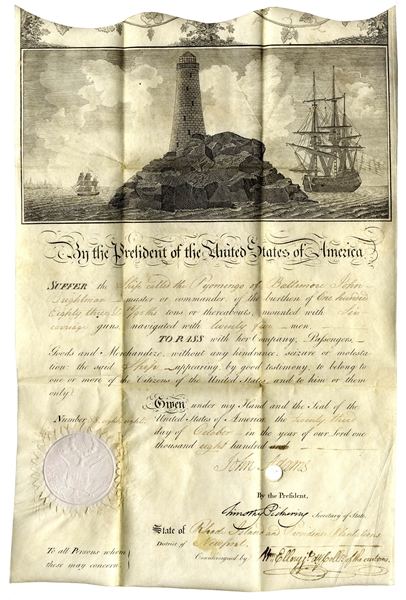 By the President of the United States of America,
SUFFER the Ship called the Pyomingo of Baltimore John
Brightman master or commander of the burthen of One hundred
Eighty three tons or thereabouts, mounted with Six
carriage guns, navigated with twenty five men
TO PASS with her Company, Passengers,
Goods and Merchandize, without any hindrance, seizure or molesta-
tion: the said Ship appearing, by good testimony, to belong to
one or more of the Citizens of the United States, and to him or them
only.
Given under my Hand and the Seal of the
Number Eight. United States of America, the twenty third
day of October in the year of our Lord one
thousand eight hundred
John Adams
By the President,
Timothy Pickering Secretary of State.
State of Rhode Island and Providence Plantations
To all Persons whom District of Newport.
these may concern: Countersigned by Wm Ellery Collr of the customs.